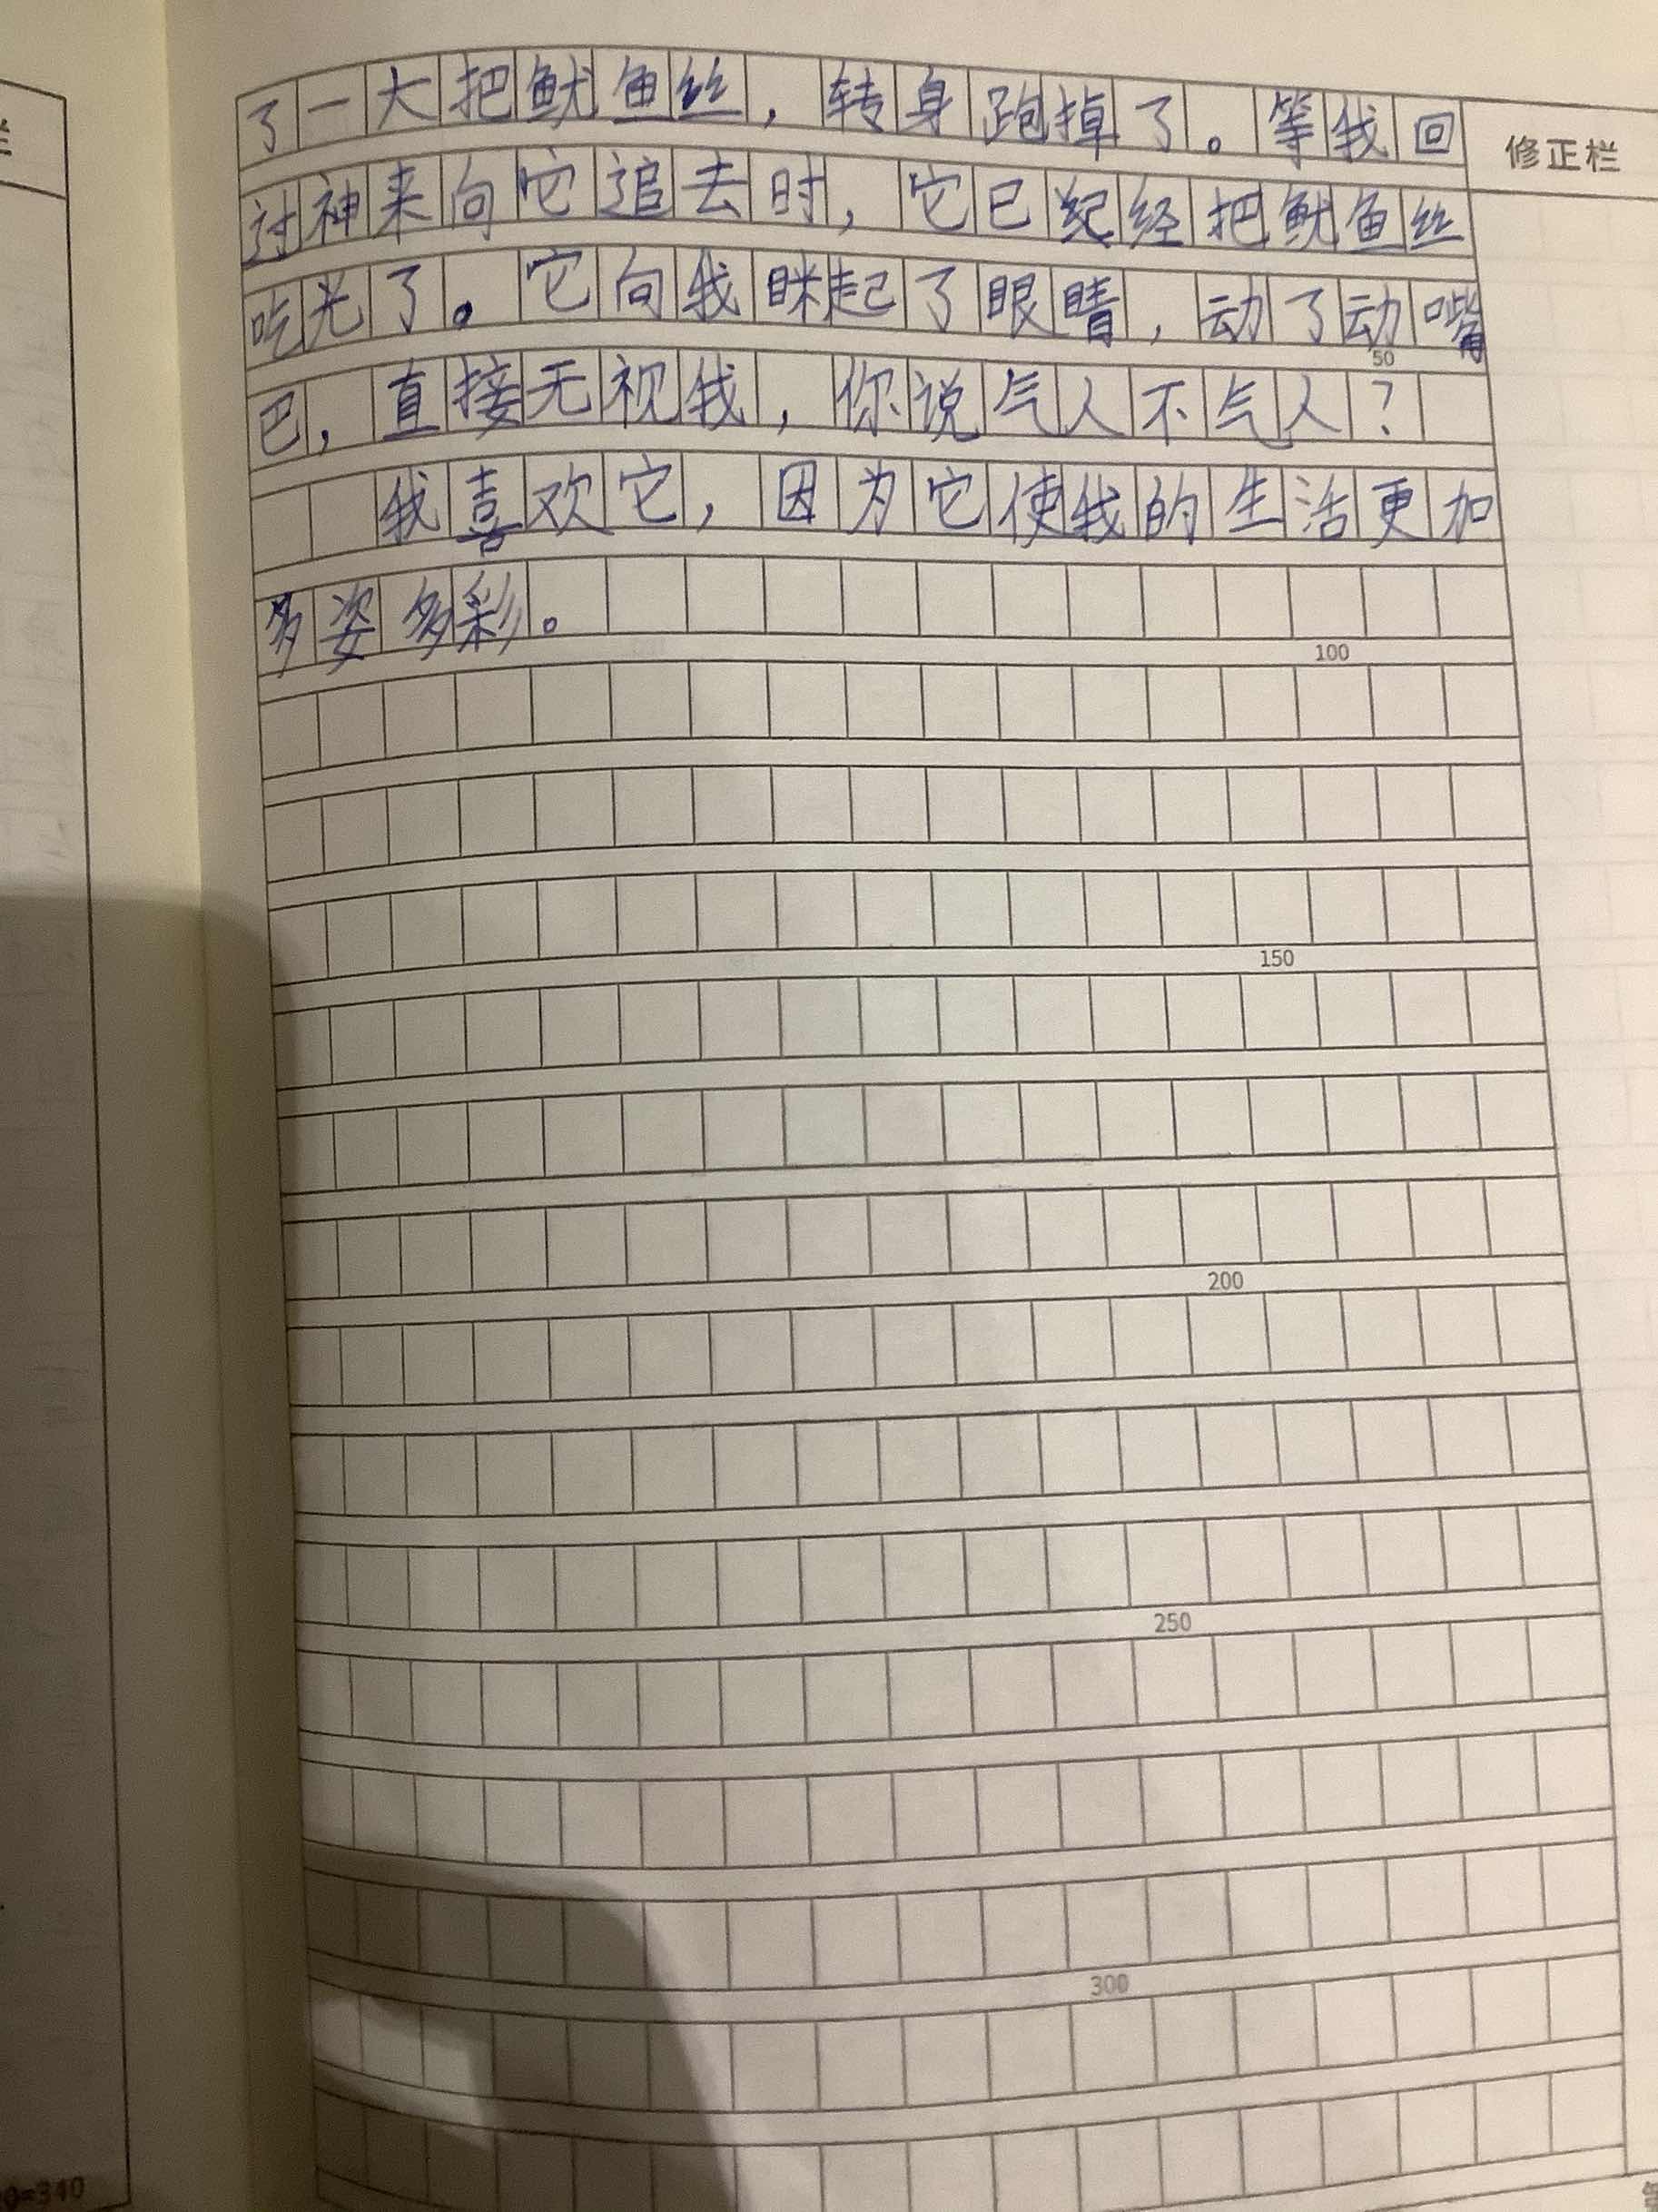 了一大把鱿鱼丝，转身跑掉了。等我回
修正栏
过神来向它追去时，它已经把鱿鱼丝
吃光了。它向我眯起了眼睛，动了动嘴
50
巴，直接无视我，你说气人不气人？
我喜欢它，因为它使我的生活更加
多姿多彩。
100
150
200
250
300
=340